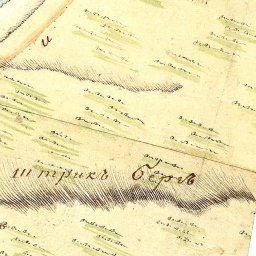 и
штрикъ бергъ